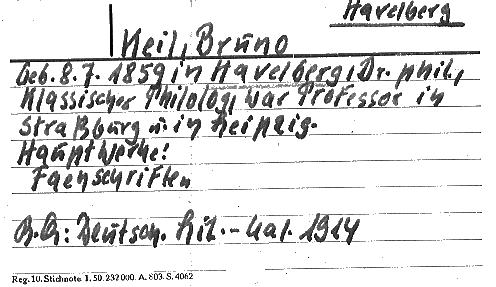 Havelberg
Keil, Bruno
Geb. 8. 7. 1859 in Havelberg, Dr. phil.,
Klassischer Philolog, war Professor in
Straßburg u. in Leipzig.
Hauptwerke:
Fachschriften
B. Q.: Deutsch. Lit. - Kal. 1914
Reg. 10. Stichnote 1. 50. 232000. A. 803. S. 4062